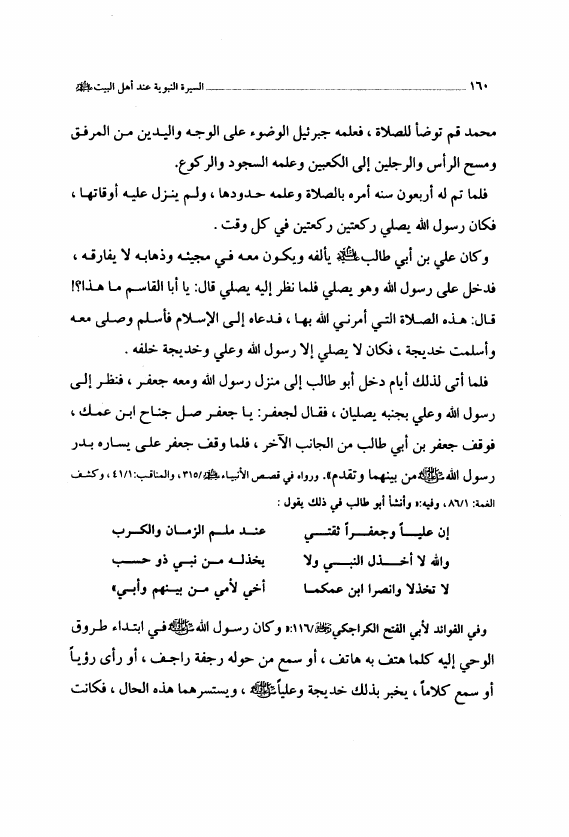 ١٦٠ السيرة النبوية عند أهل البيت
محمد قم توضأ للصلاة ، فعلمه جبرئيل الوضوء على الوجه واليدين من المرفق
ومسح الرأس والرجلين إلى الكعبين وعلمه السجود والركوع.
فلما تم له أربعون سنه أمره بالصلاة وعلمه حدودها ، ولم ينزل عليه أوقاتها ،
فكان رسول الله يصلي ركعتين ركعتين في كل وقت .
وكان علي بن أبي طالب يألفه ويكون معه في مجيئه وذهابه لا يفارقه ،
فدخل على رسول الله وهو يصلي فلما نظر إليه يصلي قال: يا أبا القاسم ما هذا؟!
قال: هذه الصلاة التي أمرني الله بها ، فدعاه إلى الإسلام فأسلم وصلى معه
وأسلمت خديجة ، فكان لا يصلي إلا رسول الله وعلي وخديجة خلفه .
فلما أتى لذلك أيام دخل أبو طالب إلى منزل رسول الله ومعه جعفر ، فنظر إلى
رسول الله وعلي بجنبه يصليان ، فقال لجعفر: يا جعفر صل جناح ابن عمك ،
فوقف جعفر بن أبي طالب من الجانب الآخر ، فلما وقف جعفر على يساره بدر
رسول الله من بينهما وتقدم». ورواه في قصص الأنبياء /٣١٥، والمناقب:٤١/١، وكشف
الغمة: ٨٦/١، وفيه:« وأنشأ أبو طالب في ذلك يقول :
إن علياً وجعفراً ثقتي عند ملم الزمان والكرب
والله لا أخذل النبي ولا يخذله من نبي ذو حسب
لا تخذلا وانصرا ابن عمكما أخي لأمي من بينهم وأبي»
وفي الفوائد لأبي الفتح الكراجكي /١١٦:« وكان رسول الله في ابتداء طروق
الوحي إليه كلما هتف به هاتف ، أو سمع من حوله رجفة راجف ، أو رأى رؤياً
أو سمع كلاماً ، يخبر بذلك خديجة وعلياً ، ويستسرهما هذه الحال ، فكانت